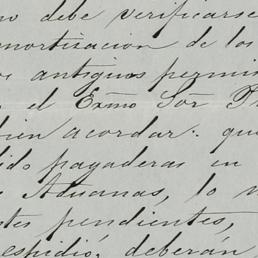 no debe verificarse
amortizacion de los
os antiguos permis
s el Exmo Sor P
bien acordar: que
ido pagaderas en
s Aduanas, lo
tes pendientes,
espidió, deberán